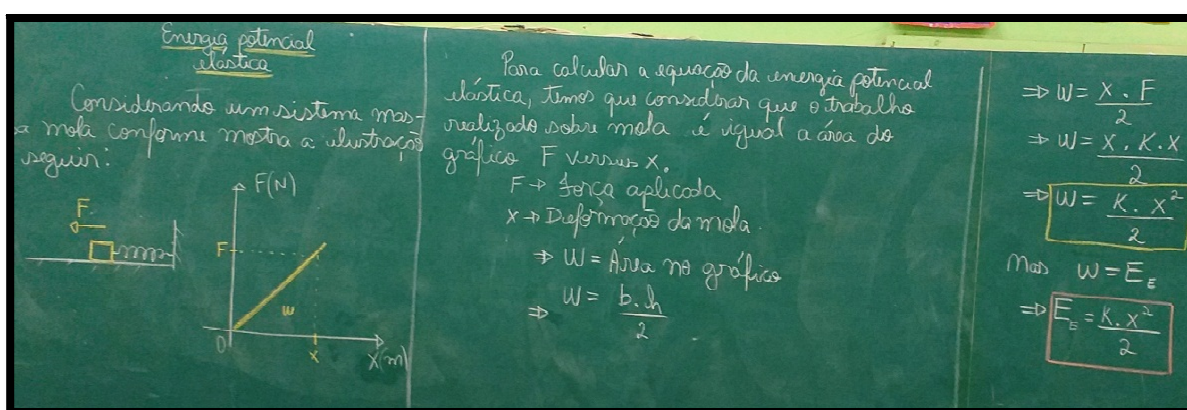 Energia potencial
elástica
Considerando um sistema mas-
sa mola conforme mostra a ilustração
seguir:
F
F(N)
F
W
0
X
X(m)
Para calcular a equação da energia potencial
elástica, temos que considerar que o trabalho
realizado sobre mola é igual a área do
gráfico F versus X.
F → Força aplicada
X → Deformação da mola.
⇒ W = Área no gráfico
⇒ W = b.h / 2
⇒ W = X . F / 2
⇒ W = X . K . X / 2
⇒ W = K . X² / 2
Mas W = E_E
⇒ E_E = K . X² / 2